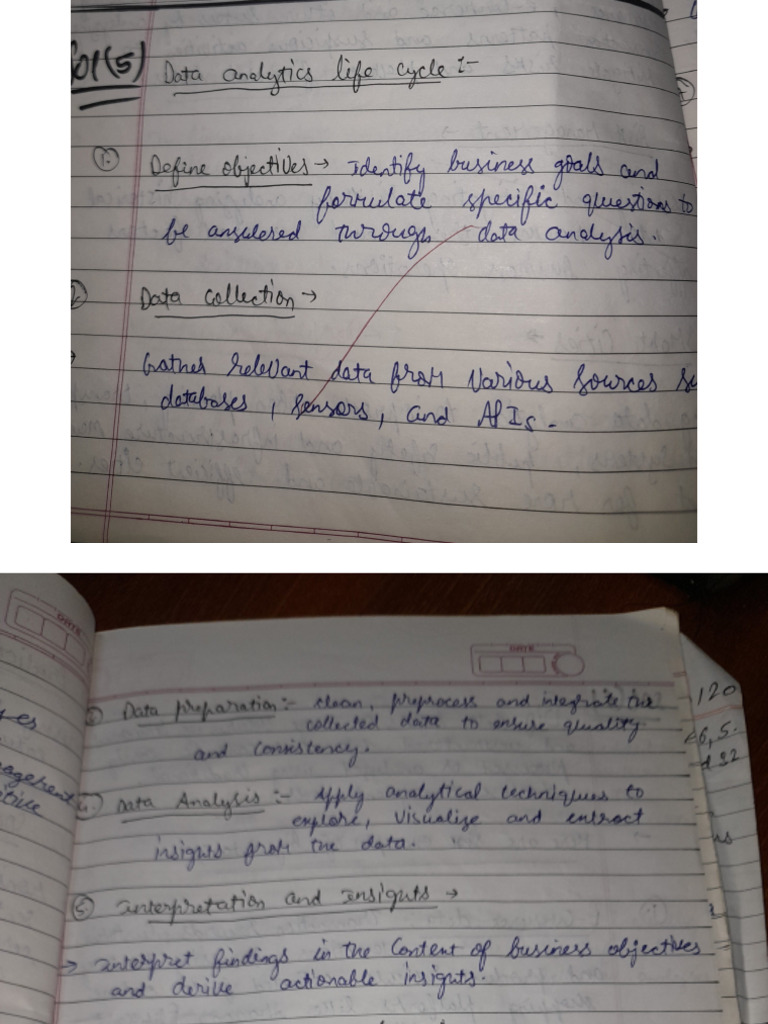 Sol(5) Data analytics life cycle :-
1. Define objectives → Identify business goals and
formulate specific questions to
be answered through data analysis.
2. Data collection →
Gather relevant data from various sources
databases, sensors, and APIs.
DATE
DATE
Data preparation :- clean, preprocess and integrate the
collected data to ensure quality
and consistency.
4. Data Analysis :- Apply analytical techniques to
explore, visualize and extract
insights from the data.
5. Interpretation and Insights →
→ interpret findings in the context of business objectives
and derive actionable insights.
120